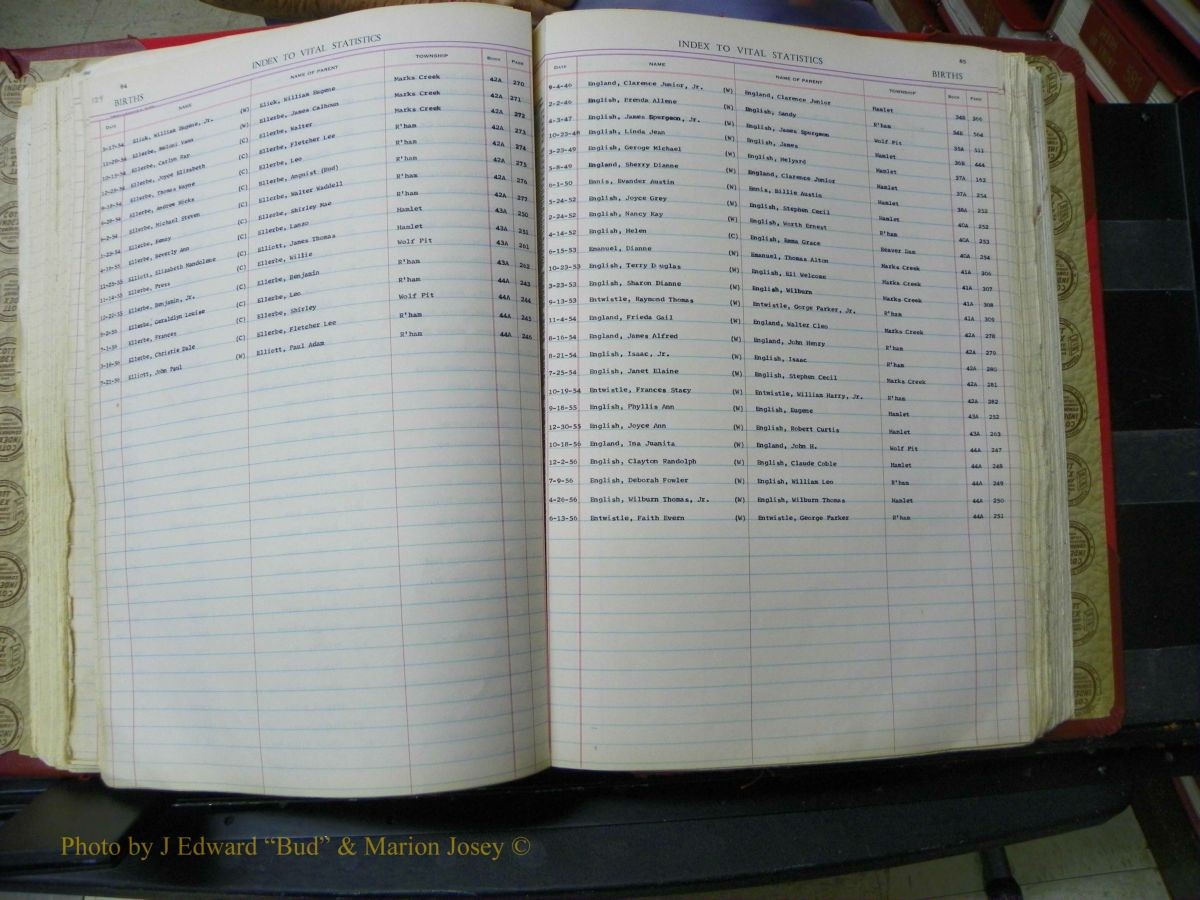 INDEX TO VITAL STATISTICS
84
BIRTHS
DATE NAME NAME OF PARENT TOWNSHIP BOOK PAGE
3-17-54 Elick, William Eugene, Jr. (W) Elick, William Eugene Marks Creek 42A 270
11-29-54 Ellerbe, Meloni Vann (W) Ellerbe, James Calhoun Marks Creek 42A 271
10-13-54 Ellerbe, Catlyn Fay (C) Ellerbe, Walter Marks Creek 42A 272
12-23-54 Ellerbe, Joyce Elizabeth (C) Ellerbe, Fletcher Lee R'ham 42A 273
Ellerbe, Thomas Wayne (C) Ellerbe, Leo R'ham 42A 274
Ellerbe, Andrew Hicks (C) Ellerbe, (Bud) R'ham 42A 275
Ellerbe, Michael Steven (C) Ellerbe, Walter Waddell R'ham 42A 276
Ellerbe, Kenny (C) Ellerbe, Shirley Mae R'ham 42A 277
Ellerbe, Beverly Ann (C) Ellerbe, Lanzo Hamlet 43A 250
11-25-55 Elliott, Elizabeth Mandolene (C) Elliott, James Thomas Hamlet 43A 251
11-14-55 Ellerbe, Press (C) Ellerbe, Willie Wolf Pit 43A 261
Ellerbe, Benjamin, Jr. (C) Ellerbe, Benjamin R'ham 43A 262
Ellerbe, Geraldlyn Louise (C) Ellerbe, Leo R'ham 44A 243
7-1-56 Ellerbe, Frances (C) Ellerbe, Shirley Wolf Pit 44A 244
3-18-56 Ellerbe, Christie Dale (C) Ellerbe, Fletcher Lee R'ham 44A 245
7-21-56 Elliott, John Paul (W) Elliott, Paul Adam R'ham 44A 246
INDEX TO VITAL STATISTICS
85
BIRTHS
DATE NAME NAME OF PARENT TOWNSHIP BOOK PAGE
8-4-46 England, Clarence Junior, Jr. (W) England, Clarence Junior Hamlet 34B 366
2-2-46 English, Frenda Allene (W) English, Sandy R'ham 34B 564
4-3-47 English, James Spurgeon, Jr. (W) English, James Spurgeon Wolf Pit 35A 511
10-23-48 English, Linda Jean (W) English, James Hamlet 36B 444
3-23-49 English, Geroge Michael (W) English, Helyard Hamlet 37A 162
5-8-49 England, Sherry Dianne (W) England, Clarence Junior Hamlet 37A 254
6-1-50 Ennis, Evander Austin (W) Ennis, Billie Austin Hamlet 38A 252
5-24-52 English, Joyce Grey (W) English, Stephen Cecil R'ham 40A 252
2-24-52 English, Nancy Kay (W) English, Worth Ernest Beaver Dam 40A 253
4-14-52 English, Helen (C) English, Emma Grace Marks Creek 40A 254
6-15-53 Emanuel, Dianne (W) Emanuel, Thomas Alton Marks Creek 41A 306
10-23-53 English, Terry D uglas (W) English, Eli Welcome Marks Creek 41A 307
3-23-53 English, Sharon Dianne (W) English, Wilburn R'ham 41A 308
9-13-53 Entwistle, Raymond Thomas (W) Entwistle, Gorge Parker, Jr. Marks Creek 41A 309
11-4-54 England, Frieda Gail (W) England, Walter Cleo R'ham 42A 278
8-16-54 England, James Alfred (W) England, John Henry R'ham 42A 279
8-21-54 English, Isaac, Jr. (W) English, Isaac Marks Creek 42A 280
7-25-54 English, Janet Elaine (W) English, Stephen Cecil R'ham 42A 281
10-19-54 Entwistle, Frances Stacy (W) Entwistle, William Harry, Jr. Hamlet 42A 282
9-18-55 English, Phyllis Ann (W) English, Eugene Hamlet 43A 252
12-30-55 English, Joyce Ann (W) English, Robert Curtis Wolf Pit 43A 263
10-18-56 England, Ina Juanita (W) England, John H. Hamlet 44A 247
12-2-56 English, Clayton Randolph (W) English, Claude Coble R'ham 44A 248
7-9-56 English, Deborah Fowler (W) English, William Leo Hamlet 44A 249
4-26-56 English, Wilburn Thomas, Jr. (W) English, Wilburn Thomas 44A 250
6-13-56 Entwistle, Faith Evern (W) Entwistle, George Parker R'ham 44A 251
Photo by J Edward “Bud” & Marion Josey ©